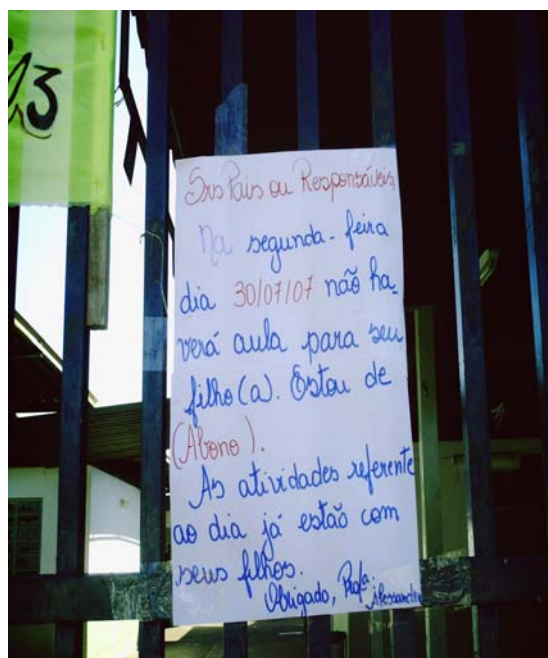 13
Srs Pais ou Responsáveis,
Na segunda-feira
dia 30/07/07 não ha-
verá aula para seu
filho(a). Estou de
(Abono).
As atividades referente
ao dia já estão com
seus filhos.
Obrigado, Profa. Alessandra